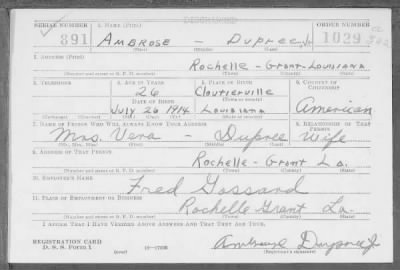 SERIAL NUMBER 1. NAME (Print) ORDER NUMBER
891 AMBROSE - DUPREE, Jr 1029
2. ADDRESS (Print)
ROCHELLE - GRANT - LOUISIANA
(Number and street or R. F. D. number) (Town) (County) (State)
3. TELEPHONE 4. AGE IN YEARS 5. PLACE OF BIRTH 6. COUNTRY OF CITIZENSHIP
26 Cloutierville
DATE OF BIRTH (Town or county)
July 26 1914 Louisiana American
7. NAME OF PERSON WHO WILL ALWAYS KNOW YOUR ADDRESS 8. RELATIONSHIP OF THAT PERSON
Mrs. Vera - Dupree Wife
(Mr., Mrs., Miss) (First) (Middle) (Last)
9. ADDRESS OF THAT PERSON
Rochelle - Grant La.
(Number and street or R. F. D. number) (Town) (County) (State)
10. EMPLOYER'S NAME
Fred Gossard
11. PLACE OF EMPLOYMENT OR BUSINESS
Rochelle Grant La.
(Number and street or R. F. D. number) (Town) (County) (State)
I AFFIRM THAT I HAVE VERIFIED ABOVE ANSWERS AND THAT THEY ARE TRUE.
REGISTRATION CARD
D. S. S. Form 1 (over) Ambrose Dupree Jr
(Registrant's signature)